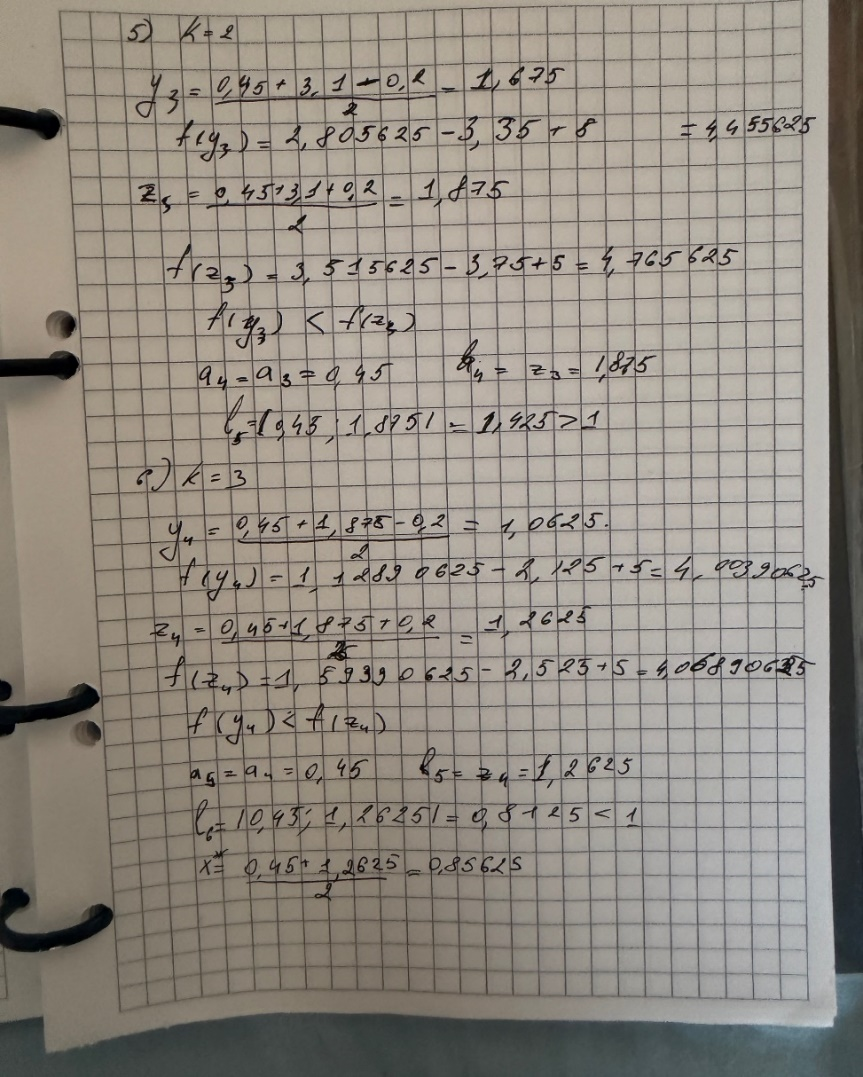 5) K=2
y₃ = (0,45 + 3,1 - 0,2)/2 = 1,675
f(y₃) = 2,805625 - 3,35 + 8 = 4,455625
z₃ = (0,45+3,1+0,2)/2 = 1,875
f(z₃) = 3,515625 - 3,75+5 = 4,765625
f(y₃) < f(z₃)
a₄ = a₃ = 0,45 b₄ = z₃ = 1,875
l₅ = |0,45; 1,875| = 1,425 > 1
6) K = 3
y₄ = (0,45 + 1,875 - 0,2)/2 = 1,0625.
f(y₄) = 1,12890625 - 2,125 + 5 = 4,00390625
z₄ = (0,45+1,875+0,2)/2 = 1,2625
f(z₄) = 1,59390625 - 2,525+5 = 4,06890625
f(y₄) < f(z₄)
a₅ = a₄ = 0,45 b₅ = z₄ = 1,2625
l₆ = |0,45; 1,2625| = 0,8125 < 1
x* = (0,45 + 1,2625)/2 = 0,85625